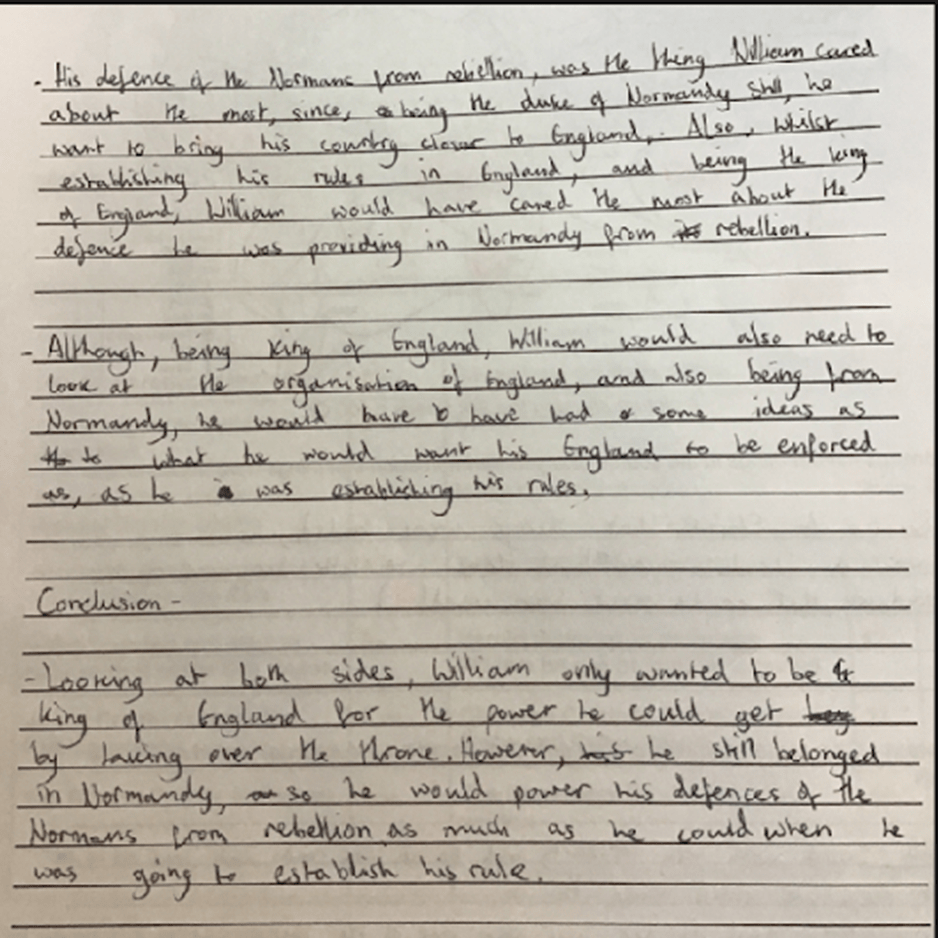 - His defence of the Normans from rebellion, was the thing William cared
about the most, since, being the duke of Normandy still, he
want to bring his country closer to England,. Also, whilst
establishing his rules in England, and being the king
of England, William would have cared the most about the
defence he was providing in Normandy from rebellion.
- Although, being King of England, William would also need to
look at the organisation of England, and also being from
Normandy, he would have to have had some ideas as
to what he would want his England to be enforced
as, as he was establishing his rules.
Conclusion -
- Looking at both sides, William only wanted to be
king of England for the power he could get
by taking over the throne. However, he still belonged
in Normandy, so he would power his defences of the
Normans from rebellion as much as he could when he
was going to establish his rule.